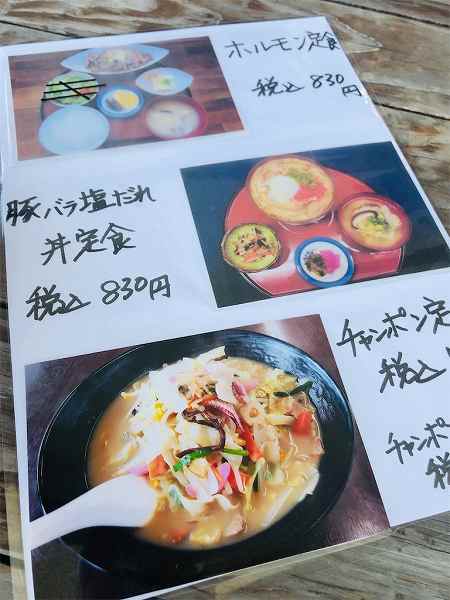 ホルモン定食
税込 830円
豚バラ塩だれ
丼定食
税込 830円
チャンポン定
税込
チャンポ
税